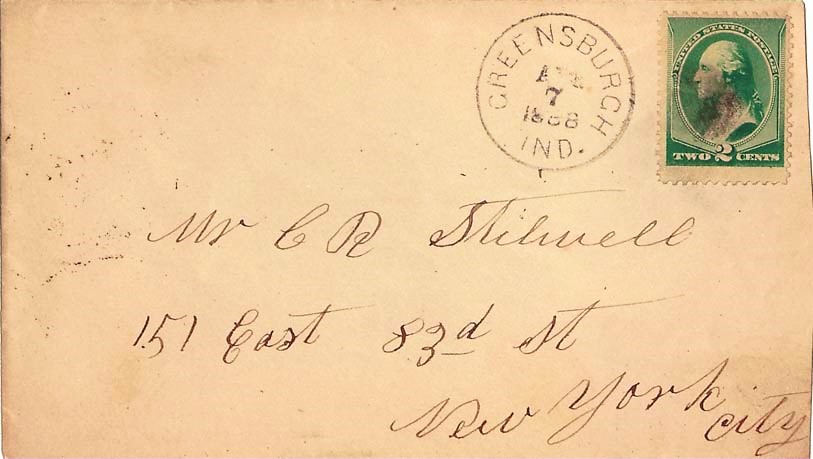 GREENSBURGH
7
1888
IND.
UNITED STATES POSTAGE
TWO 2 CENTS
Mr C R Stilwell
151 East 83d St
New York
City